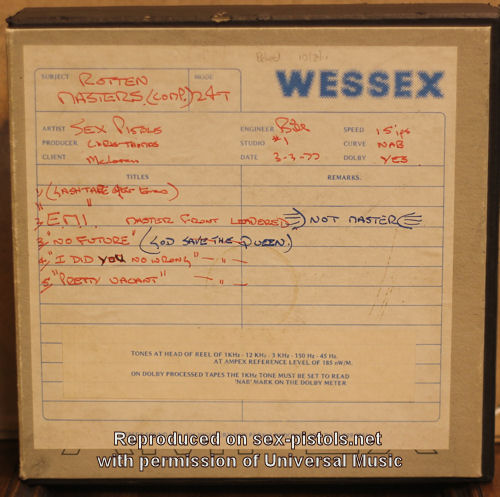 WESSEX
SUBJECT ROTTEN MODE
MASTERS (COMP.) 24T
ARTIST SEX PISTOLS ENGINEER BILL SPEED 15 ips
PRODUCER CHRIS THOMAS STUDIO #1 CURVE NAB
CLIENT McLaren DATE 3-3-77 DOLBY YES
TITLES REMARKS.
2, EMI. MASTER FRONT LEADERED NOT MASTER
3, "NO FUTURE" (GOD SAVE THE QUEEN.)
4, "I DID YOU NO WRONG" — " —
5, "PRETTY VACANT" — " —
TONES AT HEAD OF REEL OF 1KHz - 12 KHz - 3 KHz - 150 Hz - 45 Hz.
AT AMPEX REFERENCE LEVEL OF 185 nW/M.
ON DOLBY PROCESSED TAPES THE 1KHz TONE MUST BE SET TO READ
'NAB' MARK ON THE DOLBY METER
Reproduced on sex-pistols.net
with permission of Universal Music